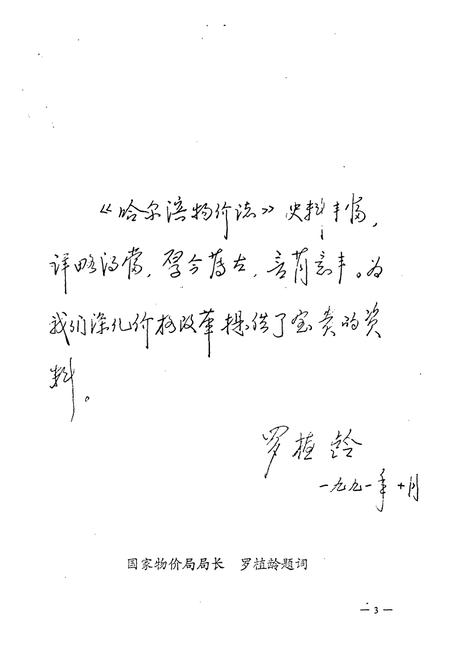 《哈尔滨物价志》史料丰富，
详略得当，厚今薄古，言简意丰。为
我们深化价格改革提供了宝贵的资
料。
罗植龄
一九九一年十月
国家物价局局长　罗植龄题词
— 3 —